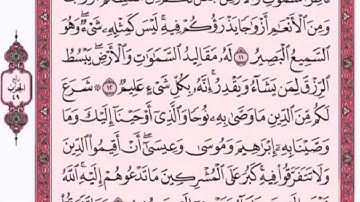 وَمِنَ ٱلْأَنْعَٰمِ أَزْوَٰجًا يَذْرَؤُكُمْ فِيهِ ۚ لَيْسَ كَمِثْلِهِۦ شَىْءٌ ۖ وَهُوَ
ٱلسَّمِيعُ ٱلْبَصِيرُ ١١ لَهُۥ مَقَالِيدُ ٱلسَّمَٰوَٰتِ وَٱلْأَرْضِ ۖ يَبْسُطُ
ٱلرِّزْقَ لِمَن يَشَآءُ وَيَقْدِرُ ۚ إِنَّهُۥ بِكُلِّ شَىْءٍ عَلِيمٌ ١٢ ۞ شَرَعَ
لَكُم مِّنَ ٱلدِّينِ مَا وَصَّىٰ بِهِۦ نُوحًا وَٱلَّذِىٓ أَوْحَيْنَآ إِلَيْكَ وَمَا
وَصَّيْنَا بِهِۦٓ إِبْرَٰهِيمَ وَمُوسَىٰ وَعِيسَىٰٓ ۖ أَنْ أَقِيمُوا۟ ٱلدِّينَ
وَلَا تَتَفَرَّقُوا۟ فِيهِ ۚ كَبُرَ عَلَى ٱلْمُشْرِكِينَ مَا تَدْعُوهُمْ إِلَيْهِ ۚ ٱللَّهُ
ربع
الحزب
٤٩